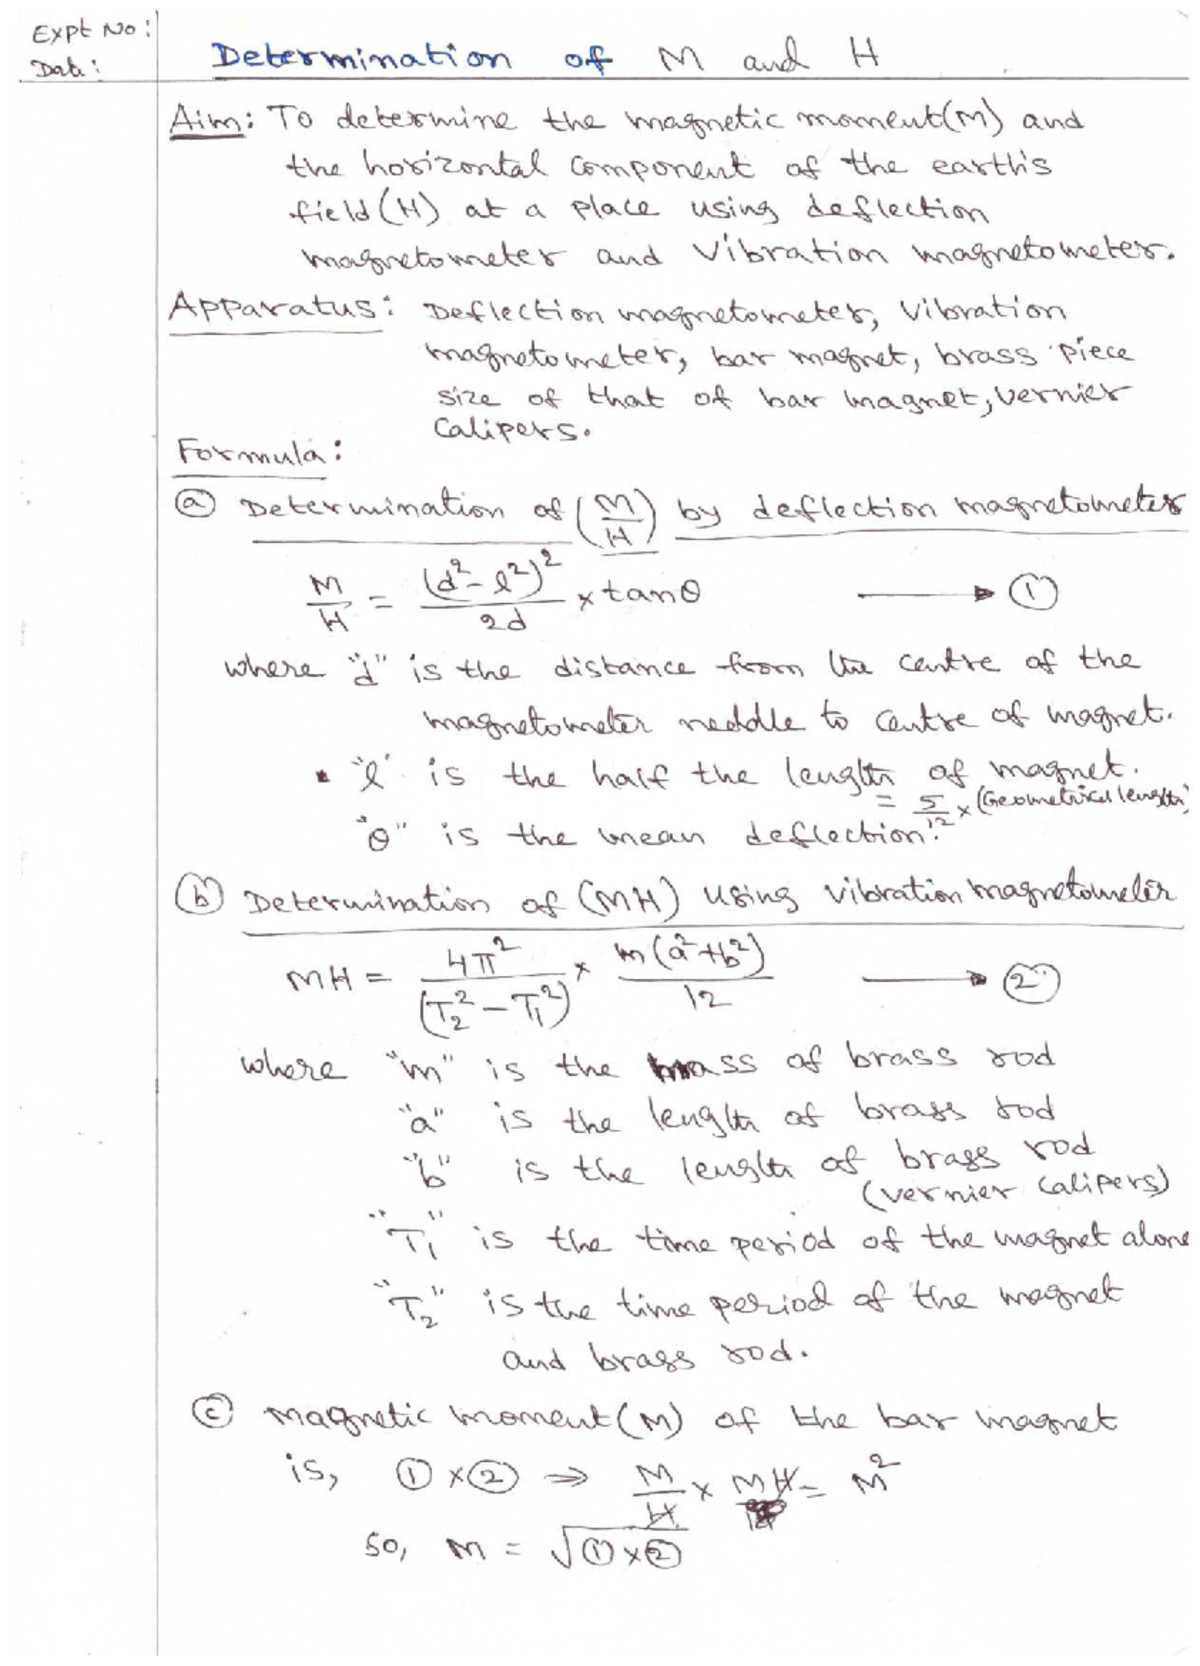 Expt No:
Date:
Determination of M and H
Aim: To determine the magnetic moment(M) and
the horizontal component of the earth's
field(H) at a place using deflection
magnetometer and vibration magnetometer.
Apparatus: Deflection magnetometer, vibration
magnetometer, bar magnet, brass piece
size of that of bar magnet, vernier
calipers.
Formula:
(a) Determination of (M/H) by deflection magnetometer
M/H = (d²-l²)²/2d × tanθ → (1)
where "d" is the distance from the centre of the
magnetometer neddle to centre of magnet.
"l" is the half the length of magnet.
= 5/12 × (Geometrical length)
"θ" is the mean deflection.
(b) Determination of (MH) using vibration magnetometer
MH = 4π²/(T₂²-T₁²) × m(a²+b²)/12 → (2)
where "m" is the mass of brass rod
"a" is the length of brass rod
"b" is the length of brass rod
(vernier calipers)
"T₁" is the time period of the magnet alone
"T₂" is the time period of the magnet
and brass rod.
(c) Magnetic moment(M) of the bar magnet
is, (1)×(2) ⇒ M/H × MH = M²
so, M = √(1)×(2)